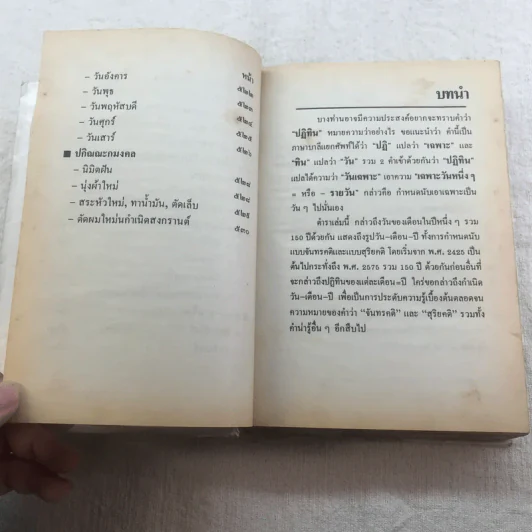 หน้า
– วันอังคาร ๕๒๒
– วันพุธ ๕๒๓
– วันพฤหัสบดี ๕๒๔
– วันศุกร์ ๕๒๕
– วันเสาร์ ๕๒๖
■ ปกิณณะกมงคล
– นิมิตฝัน ๕๒๘
– นุ่งผ้าใหม่ ๕๒๘
– สระหัวใหม่, ทาน้ำมัน, ตัดเล็บ ๕๒๙
– ตัดผมใหม่นกำเนิดสงกรานต์ ๕๓๐
บทนำ
บางท่านอาจมีความประสงค์อยากจะทราบคำว่า
"ปฏิทิน" หมายความว่าอย่างไร ขอแนะนำว่า คำนี้เป็น
ภาษาบาลีแยกศัพท์ได้ว่า "ปฏิ" แปลว่า "เฉพาะ" และ
"ทิน" แปลว่า "วัน" รวม 2 คำเข้าด้วยกันว่า "ปฏิทิน"
แปลได้ความว่า "วันเฉพาะ" เอาความ "เฉพาะวันหนึ่ง ๆ
" หรือ - รายวัน" กล่าวคือ กำหนดนับเอาเฉพาะเป็น
วัน ๆ ไปนั่นเอง
ตำราเล่มนี้ กล่าวถึงวันของเดือนในปีหนึ่ง ๆ รวม
150 ปีด้วยกัน แสดงถึงรูปวัน-เดือน-ปี ทั้งการกำหนดนับ
แบบจันทรคติและแบบสุริยคติ โดยเริ่มจาก พ.ศ. 2425 เป็น
ต้นไปกระทั่งถึง พ.ศ. 2575 รวม 150 ปี ด้วยกันก่อนอื่นที่
จะกล่าวถึงปฏิทินของแต่ละเดือน-ปี ใคร่ขอกล่าวถึงกำเนิด
วัน-เดือน-ปี เพื่อเป็นการประดับความรู้เบื้องต้นตลอดจน
ความหมายของคำว่า "จันทรคติ" และ "สุริยคติ" รวมทั้ง
คำน่ารู้อื่น ๆ อีกสืบไป